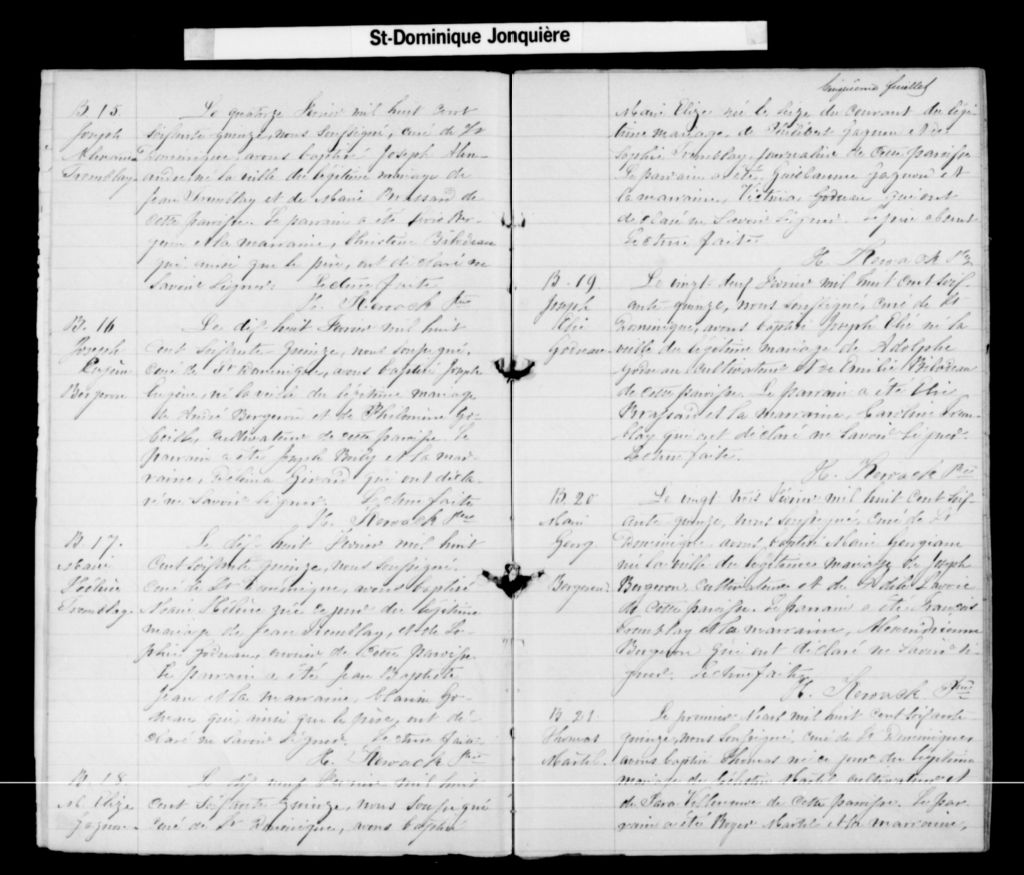 St-Dominique Jonquière
B. 15
Joseph
Tremblay
Le quatorze Février mil huit cent
soixante quinze, nous soussigné, curé de St
Dominique avons baptisé Joseph Alex-
andre né la veille du légitime mariage de
Jean Tremblay et de Marie Brassard de
cette paroisse. Le parrain a été
et la marraine, Christine Bilodeau
qui ainsi que le père, ont déclaré ne
savoir signer. Lecture faite
H. Kerouack Ptre
B. 16
Joseph
Eugène
Bergeron
Le dix huit Février mil huit
cent soixante quinze, nous soussigné,
curé de St Dominique, avons baptisé Joseph
Eugène, né la veille du légitime mariage
de André Bergeron et de Philomène Go-
beille, cultivateur de cette paroisse. Le
parrain a été Joseph Boily et la mar-
raine, Délima Girard qui ont décla-
ré ne savoir signer. Lecture faite
H. Kerouack Ptre
B. 17.
Marie
Hélène
Tremblay
Le dix huit Février mil huit
cent soixante quinze, nous soussigné,
curé de St Dominique, avons baptisé
Marie Hélène née ce jour du légitime
mariage de Jean Tremblay, et de So-
phie Godreau, ouvrier de cette paroisse
Le parrain a été Jean Baptiste
et la marraine,
qui ainsi que le père, ont dé-
claré ne savoir signer. Lecture faite
H. Kerouack Ptre
B. 18
M. Elize
Gagnon
Le dix neuf Février mil huit
cent soixante quinze, nous soussigné
curé de St Dominique, avons baptisé
Cinquième feuillet
Marie Elize née le seize du courant du légi-
time mariage de Philibert Gagnon et de
Sophie Tremblay, journalier de cette paroisse
Le parrain a été Guillaume Gagnon et
la marraine, Victoria Godreau qui ont
déclaré ne savoir signer. Le père absent
Lecture faite
H. Kerouack Ptre
B. 19
Joseph
Elie
Godreau
Le vingt deux Février mil huit cent soix-
ante quinze, nous soussigné, curé de St
Dominique, avons baptisé Joseph Elie né la
veille du légitime mariage de Adolphe
Godreau cultivateur et de Emélie Bilodeau
de cette paroisse. Le parrain a été Elie
Brassard et la marraine, Caroline Trem-
blay qui ont déclaré ne savoir signer.
Lecture faite.
H. Kerouack Ptre
B. 20
Marie
Georg.
Bergeron
Le vingt trois Février mil huit cent soix-
ante quinze, nous soussigné, curé de St
Dominique avons baptisé Marie Georgiana
née la veille du légitime mariage de Joseph
Bergeron cultivateur et de Adèle Lavoie
de cette paroisse. Le parrain a été François
Tremblay et la marraine, Alexandrienne
Bergeron qui ont déclaré ne savoir si-
gner. Lecture faite
H. Kerouack Ptre
B. 21.
Thomas
Martel.
Le premier Mars mil huit cent soixante
quinze, nous soussigné, curé de St Dominique
avons baptisé Thomas né ce jour du légitime
mariage de Célestin Martel cultivateur et
de Sara Villeneuve de cette paroisse. Le par-
rain a été Roger Martel et la marraine,